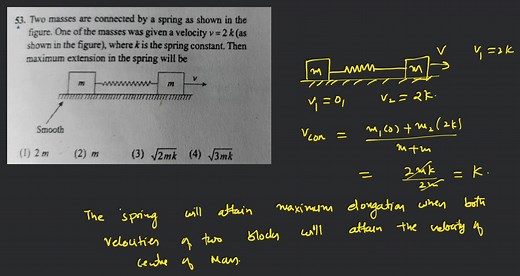 53. Two masses are connected by a spring as shown in the
figure. One of the masses was given a velocity v = 2 k (as
shown in the figure), where k is the spring constant. Then
maximum extension in the spring will be
m m v
Smooth
(1) 2 m (2) m (3) √2mk (4) √3mk
m m V V₁ = 2K
V₁ = 0, V₂ = 2K.
Vcom = m₁(0) + m₂(2K) / m+m
= 2mK / 2m = K.
The spring will attain maximum elongation when both
velocities of two blocks will attain the velocity of
centre of mass.